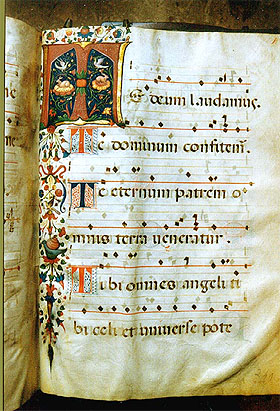 Te deum laudamus.
Te dominum confitem̄.
Te eternum patrem o
mnis terra veneratur.
Tibi omnes angeli ti
bi celi et universe pote